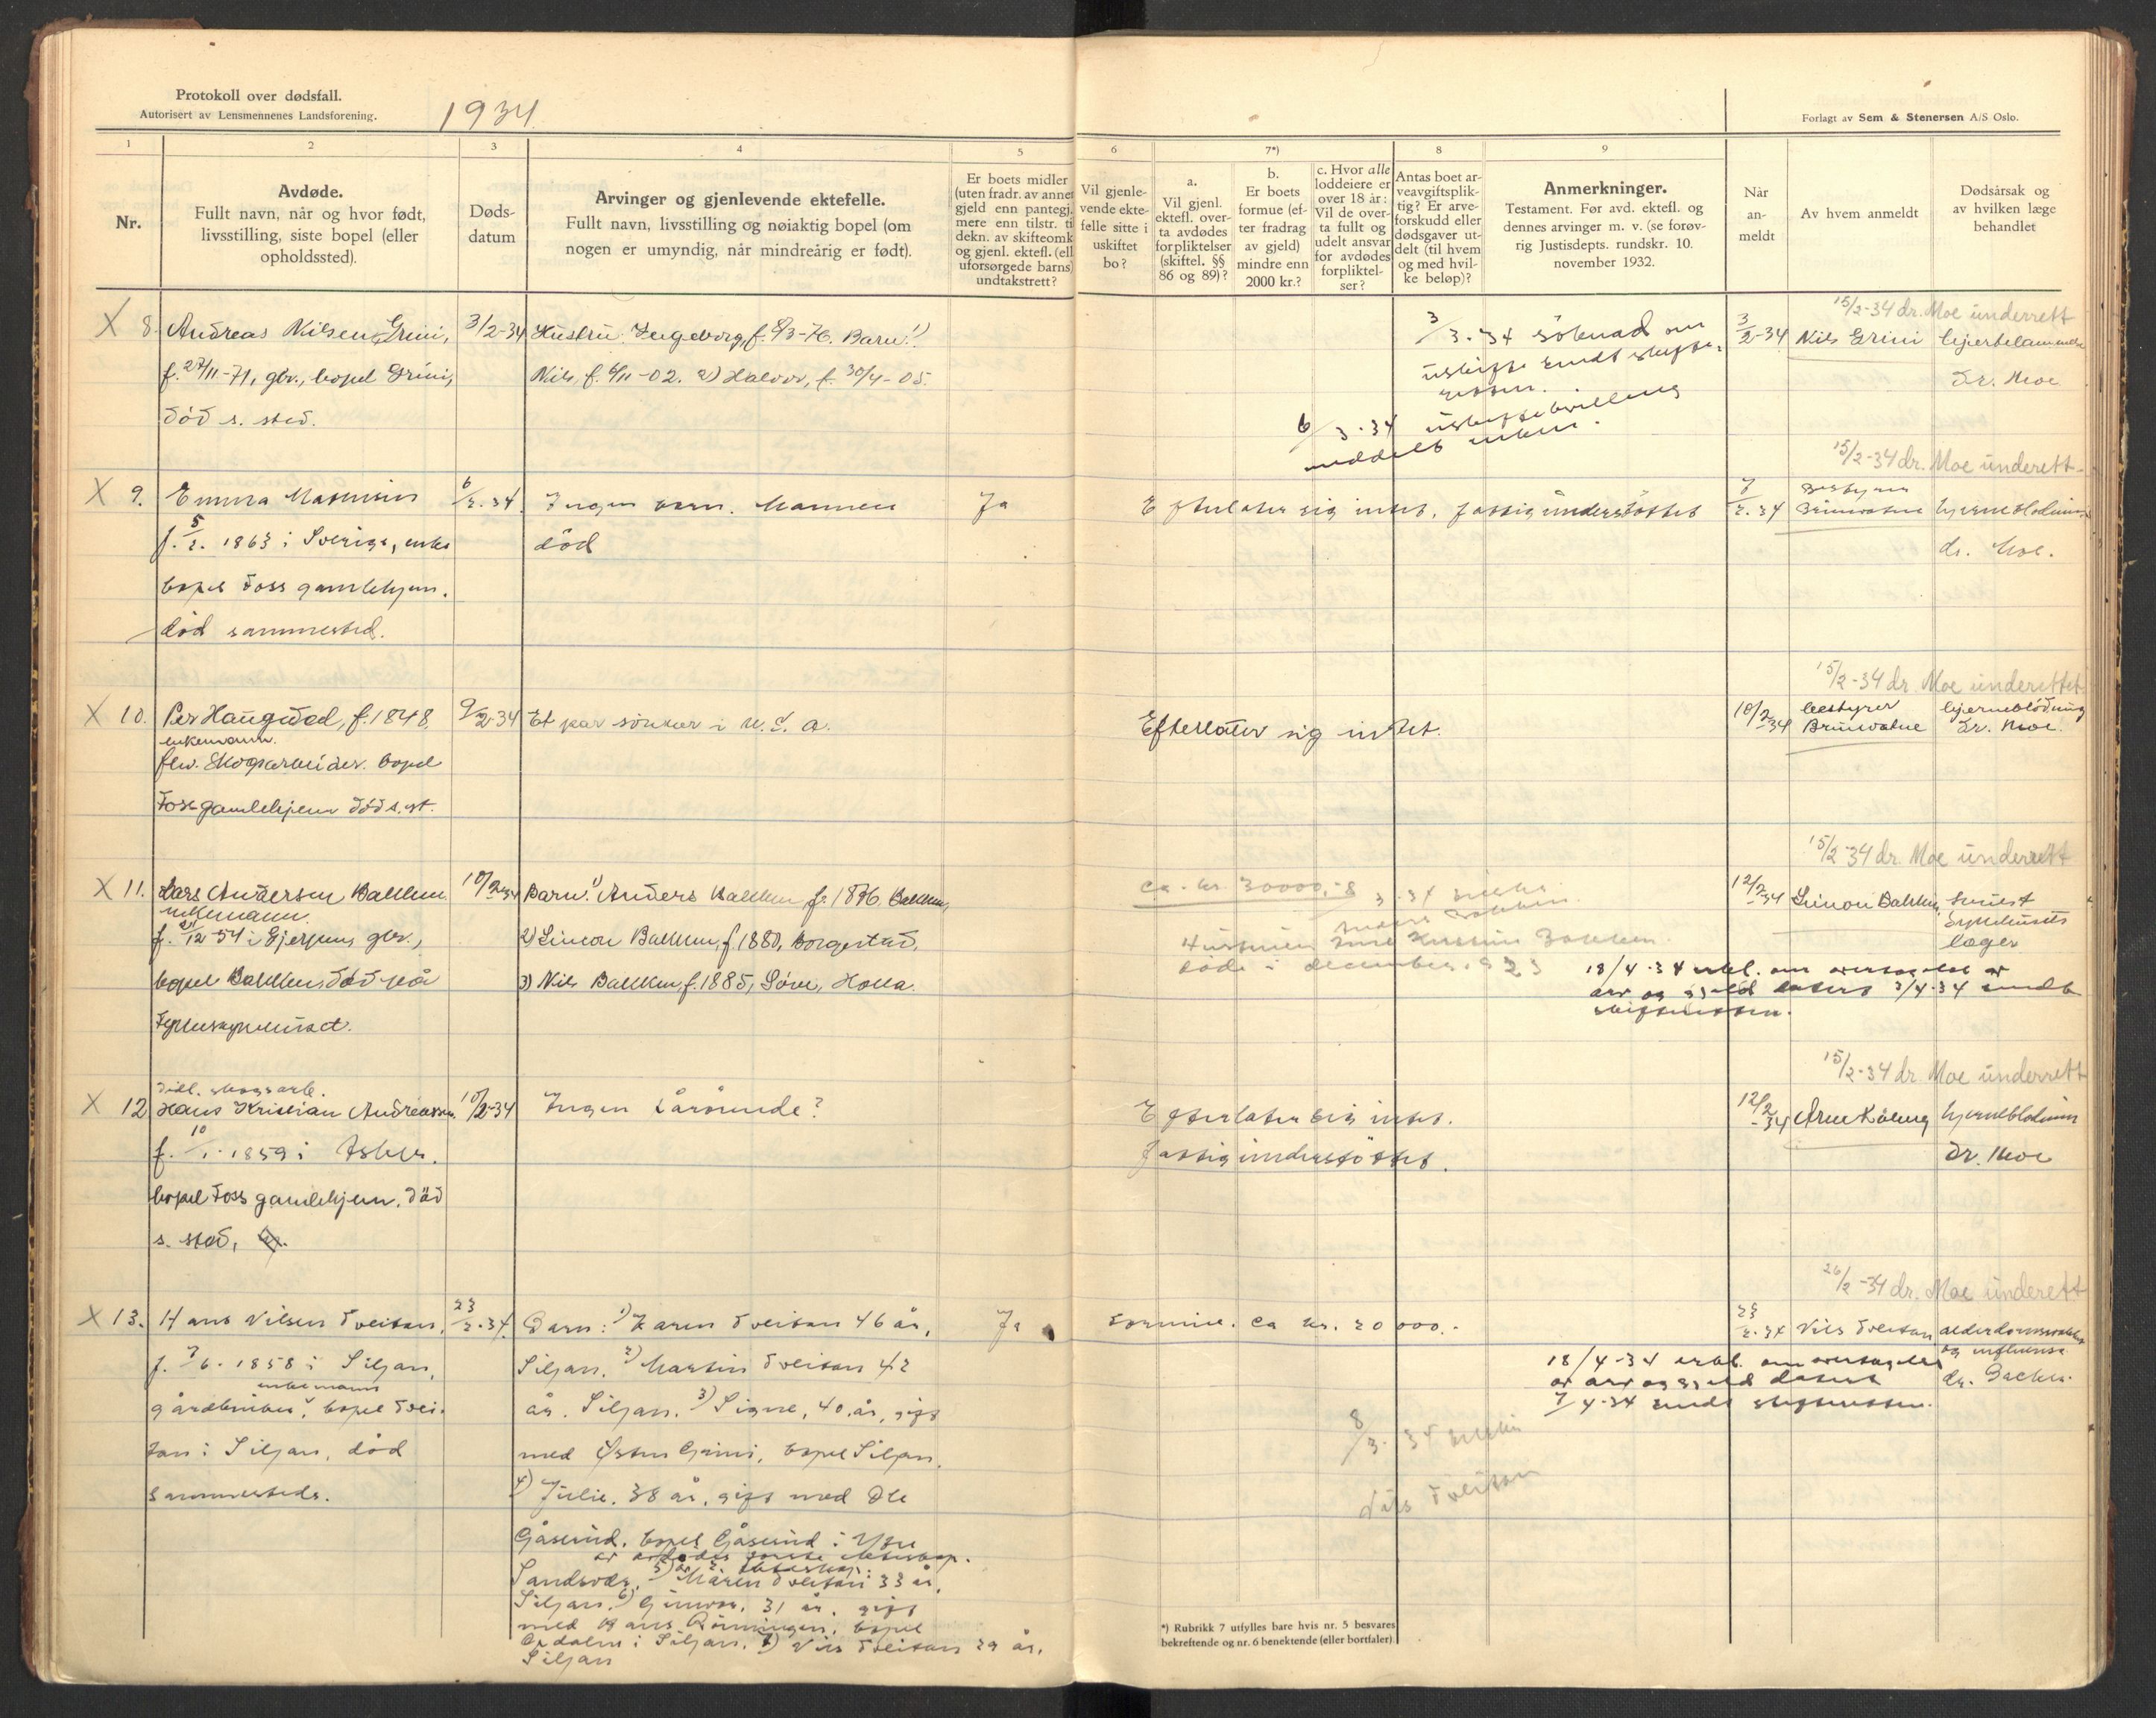 Protokoll over dødsfall.
Autorisert av Lensmennenes Landsforening.
1934
Forlagt av Sem & Stenersen A/S Oslo.
1
2
3
4
5
6
7*)
8
9
Nr.
Avdøde.
Fullt navn, når og hvor født,
livsstilling, siste bopel (eller
opholdssted).
Døds-
datum
Arvinger og gjenlevende ektefelle.
Fullt navn, livsstilling og nøiaktig bopel (om
nogen er umyndig, når mindreårig er født).
Er boets midler
(uten fradr. av annet
gjeld enn pantegj.
mere enn tilstr. ti
dekn. av skifteomk
og gjenl. ektefl. (ell
uforsørgede barns)
undtakstrett?
Vil gjenle-
vende ekte-
felle sitte i
uskiftet
bo?
a.
Vil gjenl.
ektefl. over-
ta avdødes
forpliktelser
(skiftel. §§
86 og 89)?
b.
Er boets
formue (ef-
ter fradrag
av gjeld)
mindre enn
2000 kr.?
c. Hvor alle
loddeiere er
over 18 år:
Vil de over-
ta fullt og
udelt ansvar
for avdødes
forpliktel-
ser?
Antas boet ar-
veavgiftsplik-
tig? Er arve-
forskudd eller
dødsgaver ut-
delt (til hvem
og med hvil-
ke beløp)?
Anmerkninger.
Testament. Før avd. ektefl. og
dennes arvinger m. v. (se forøv-
rig Justisdepts. rundskr. 10.
november 1932.
Når
an-
meldt
Av hvem anmeldt
Dødsårsak og
av hvilken læge
behandlet
15/2-34 dr. Moe underrett
X 8. Andreas Nilsen Grini, 3/2-34 Hustru: Ingeborg, f. 8/3-76. Barn: 1) 3/3.34 söknad om 3/2-34 Nils Grini hjertelammelse
f. 27/11-71, gbr., bopel Grini, Nils, f. 6/11-02. 2) Halvor, f. 30/4-05. uskifte sendt skifte- dr. Moe
död s. sted. retten.
6/3.34 uskiftebevilling
meddelt enken.
15/2-34 dr. Moe underett
X 9. Emma Mathisen 6/2.34. Ingen barn. Mannen Ja Efterlater sig intet. fattigunderstöttet 7/2.34 Bestyrer
f. 5/2. 1863 i Sverige, enke död Brunvatne hjerneblödning
bopel Foss gamlehjem. dr. Moe.
död sammested.
15/2-34 dr. Moe underettet
X 10. Per Haugdad, f. 1848, 9/2-34 Et par sönner i U.S.A. Efterlater sig intet. 10/2-34 bestyrer hjerneblödning
enkemann. Brunvatne dr. Moe.
fhv. Skogsarbeider. bopel
Foss gamlehjem död s. st.
15/2-34 dr. Moe underrett
X 11. Lars Andersen Bakken 10/2-34 Barn: 1) Anders Bakken f. 1876, Bakken, ca. kr. 30000,- 8/3.34 12/2-34 Simon Bakken,
enkemann.
f. 12-54 i Gjerpen, gbr., 2) Simon Bakken, f. 1880, Borgestad, Hustruen Kirstine Bakken sykehusets
bopel Bakken, död på 3) Nils Bakken, f. 1885, Söve, Holla. döde i december 1923 læger
18/4.34 erkl. om overtagelse av
arv og gjeld datert 3/4.34 sendt
skifteretten.
15/2-34 dr. Moe underrett
skogsarb.
X 12 Hans Kristian Andreassen 10/2-34 Ingen Pårörende? Efterlater sig intet. 12/2-34 hjerneblödning
f. 10/1.1859 i Asker. fattigunderstöttet. dr. Moe
bopel Foss gamlehjem, död
s. sted,
26/2-34 dr. Moe underett
X 13. Hans Nilsen Tveitan, 23/2.34. Barn: 1) Karen Tveitan 46 år, Ja Formue. ca kr. 20 000.- 25/2.34 Nils Tveitan alderdomssvakhet
f. 7/6.1858 i Siljan, Siljan. 2) Martin Tveitan 42 og influensa
enkemann
gårdbruker, bopel Tvei- år. Siljan. 3) Signe, 40 år, gift dr. Backer
tan i Siljan, död med Östen Grini, bopel Siljan.
sammesteds. 4) Julie. 38 år, gift med Ole
18/4-34 erkl. om overtagelse
av arv og gjeld datert
7/4-34 sendt skifteretten.
8/3.34
Nils Tveitan
Gåserud. bopel Gåserud i Ytre
av avdödes förste ekteskap.
Sandsvær. 5) Maren Tveitan 33 år,
Siljan. 6) Gunvor, 31 år, gift
med Hans Rönningen, bopel
Opdalen i Siljan. 7) Nils Tveitan 29 år.
Siljan
*) Rubrikk 7 utfylles bare hvis nr. 5 besvares
bekreftende og nr. 6 benektende (eller bortfaler)